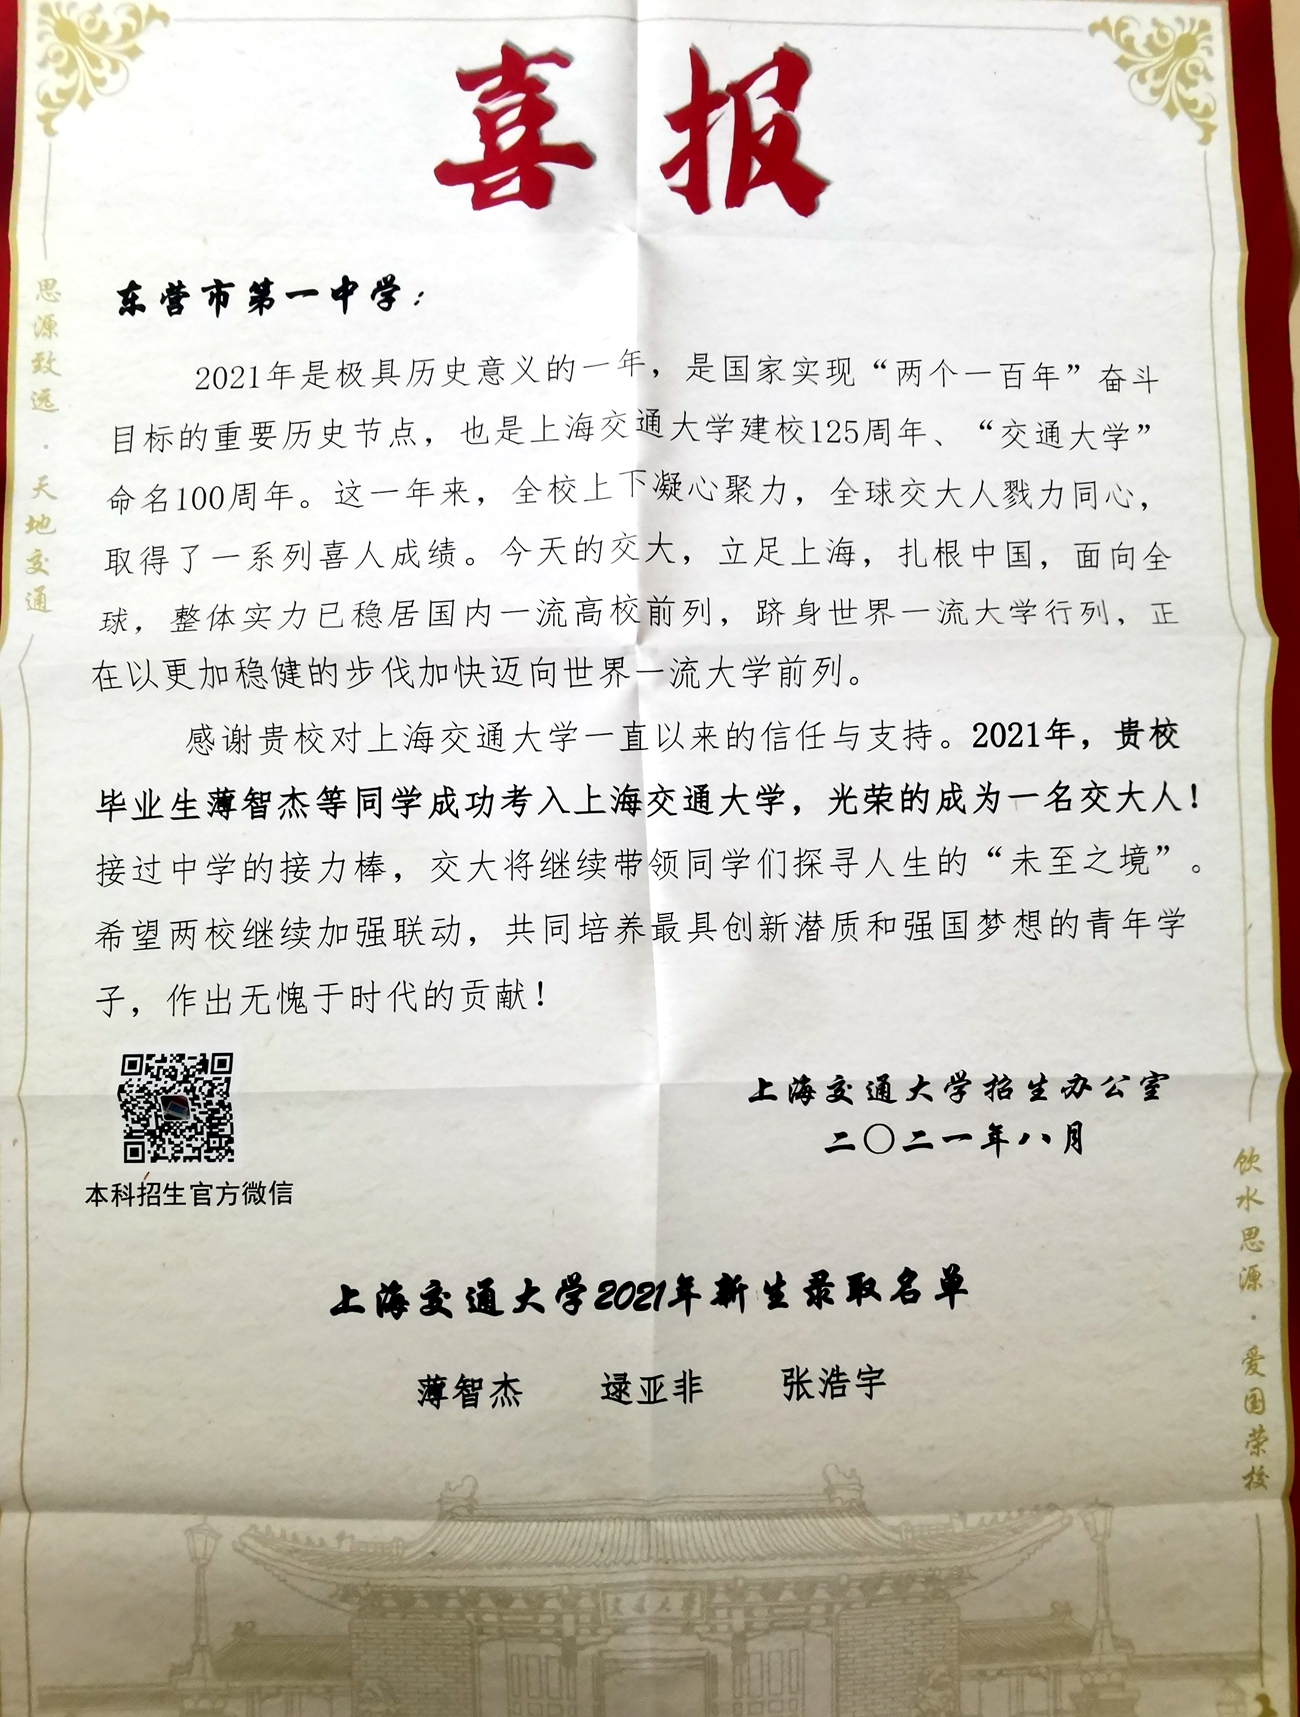 喜报
东营市第一中学：
2021年是极具历史意义的一年，是国家实现“两个一百年”奋斗
目标的重要历史节点，也是上海交通大学建校125周年、“交通大学”
命名100周年。这一年来，全校上下凝心聚力，全球交大人戮力同心，
取得了一系列喜人成绩。今天的交大，立足上海，扎根中国，面向全
球，整体实力已稳居国内一流高校前列，跻身世界一流大学行列，正
在以更加稳健的步伐加快迈向世界一流大学前列。
感谢贵校对上海交通大学一直以来的信任与支持。2021年，贵校
毕业生薄智杰等同学成功考入上海交通大学，光荣的成为一名交大人！
接过中学的接力棒，交大将继续带领同学们探寻人生的“未至之境”。
希望两校继续加强联动，共同培养最具创新潜质和强国梦想的青年学
子，作出无愧于时代的贡献！
上海交通大学招生办公室
二〇二一年八月
本科招生官方微信
上海交通大学2021年新生录取名单
薄智杰 逯亚非 张浩宇
思源致远·天地交通
饮水思源·爱国荣校